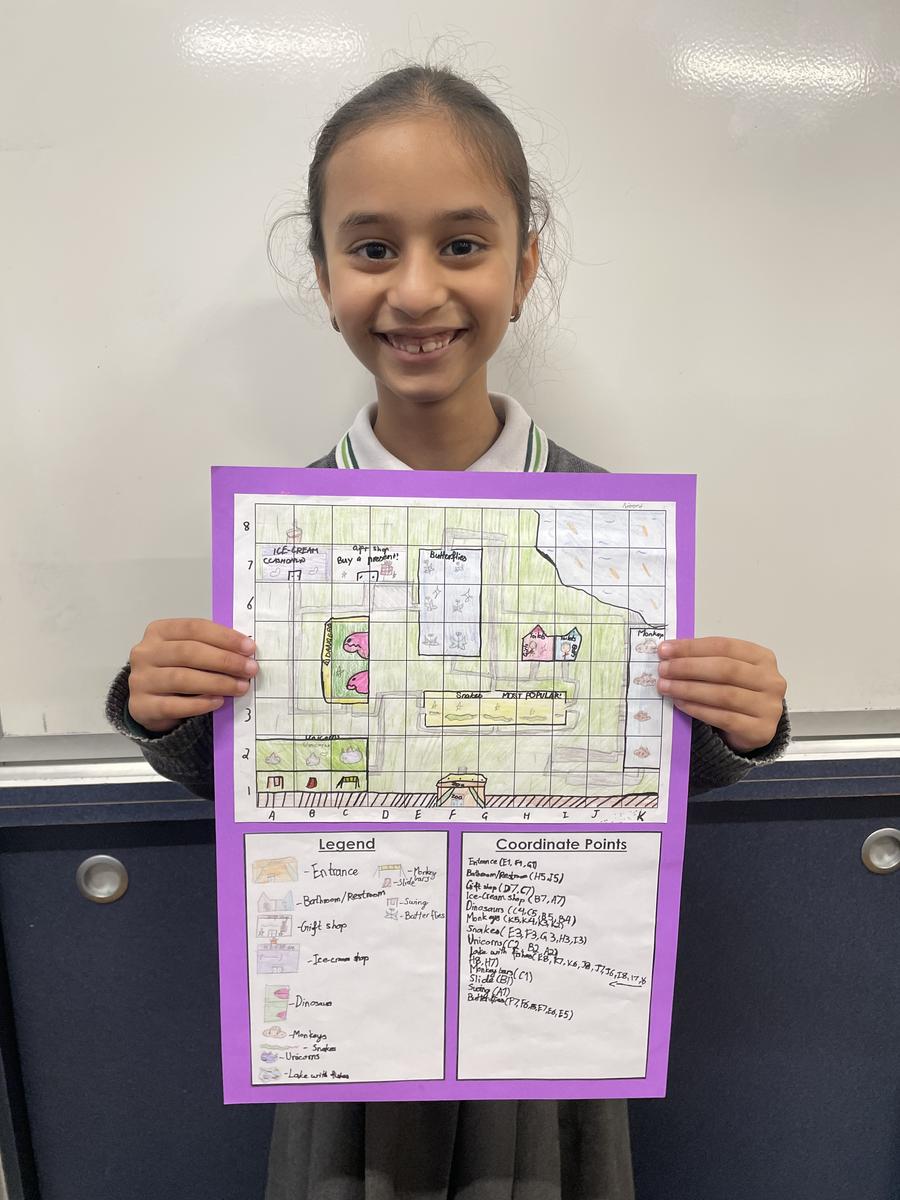 8
ICE-CREAM
Gift shop
Buy a present!
Butterflies
7
6
Toilets
Monkeys
Snakes
MOST POPULAR!
3
2
1
ZOO
A B C D E F G H I J K
Legend
-Entrance
-Monkey bars
-Slide
-Bathroom/Restroom
-Swing
-Butterflies
-Gift shop
-Ice-cream shop
-Dinosaurs
-Monkeys
-Snakes
-Unicorns
-Lake with fishes
Coordinate Points
Entrance (E1, F1, G1)
Bathroom/Restroom (H5, I5)
Gift shop (D7, C7)
Ice-Cream shop (B7, A7)
Dinosaurs (C4, C5, B5, B4)
Monkeys (K5, K4, K3, K2)
Snakes (E3, F3, G3, H3, I3)
Unicorns (C2, B2, A2)
Lake with fishes (K8, K7, K6, J8, J7, J6, I8, I7, I6
H8, H7)
Monkey bars (C1)
Slide (B1)
Swing (A1)
Butterflies (F7, F6, F5, E7, E6, E5)